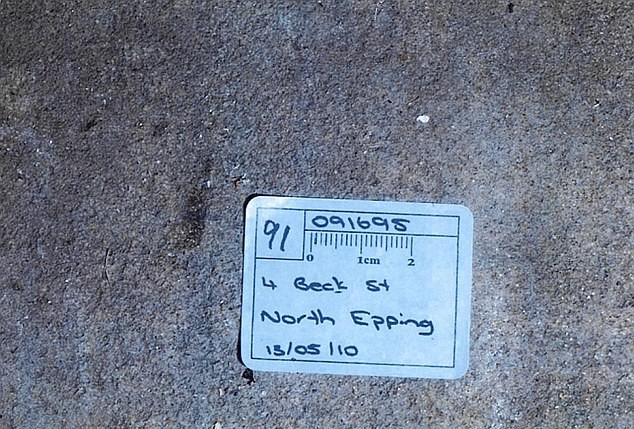 91
091695
0 1cm 2
4 Beck St
North Epping
13/05/10